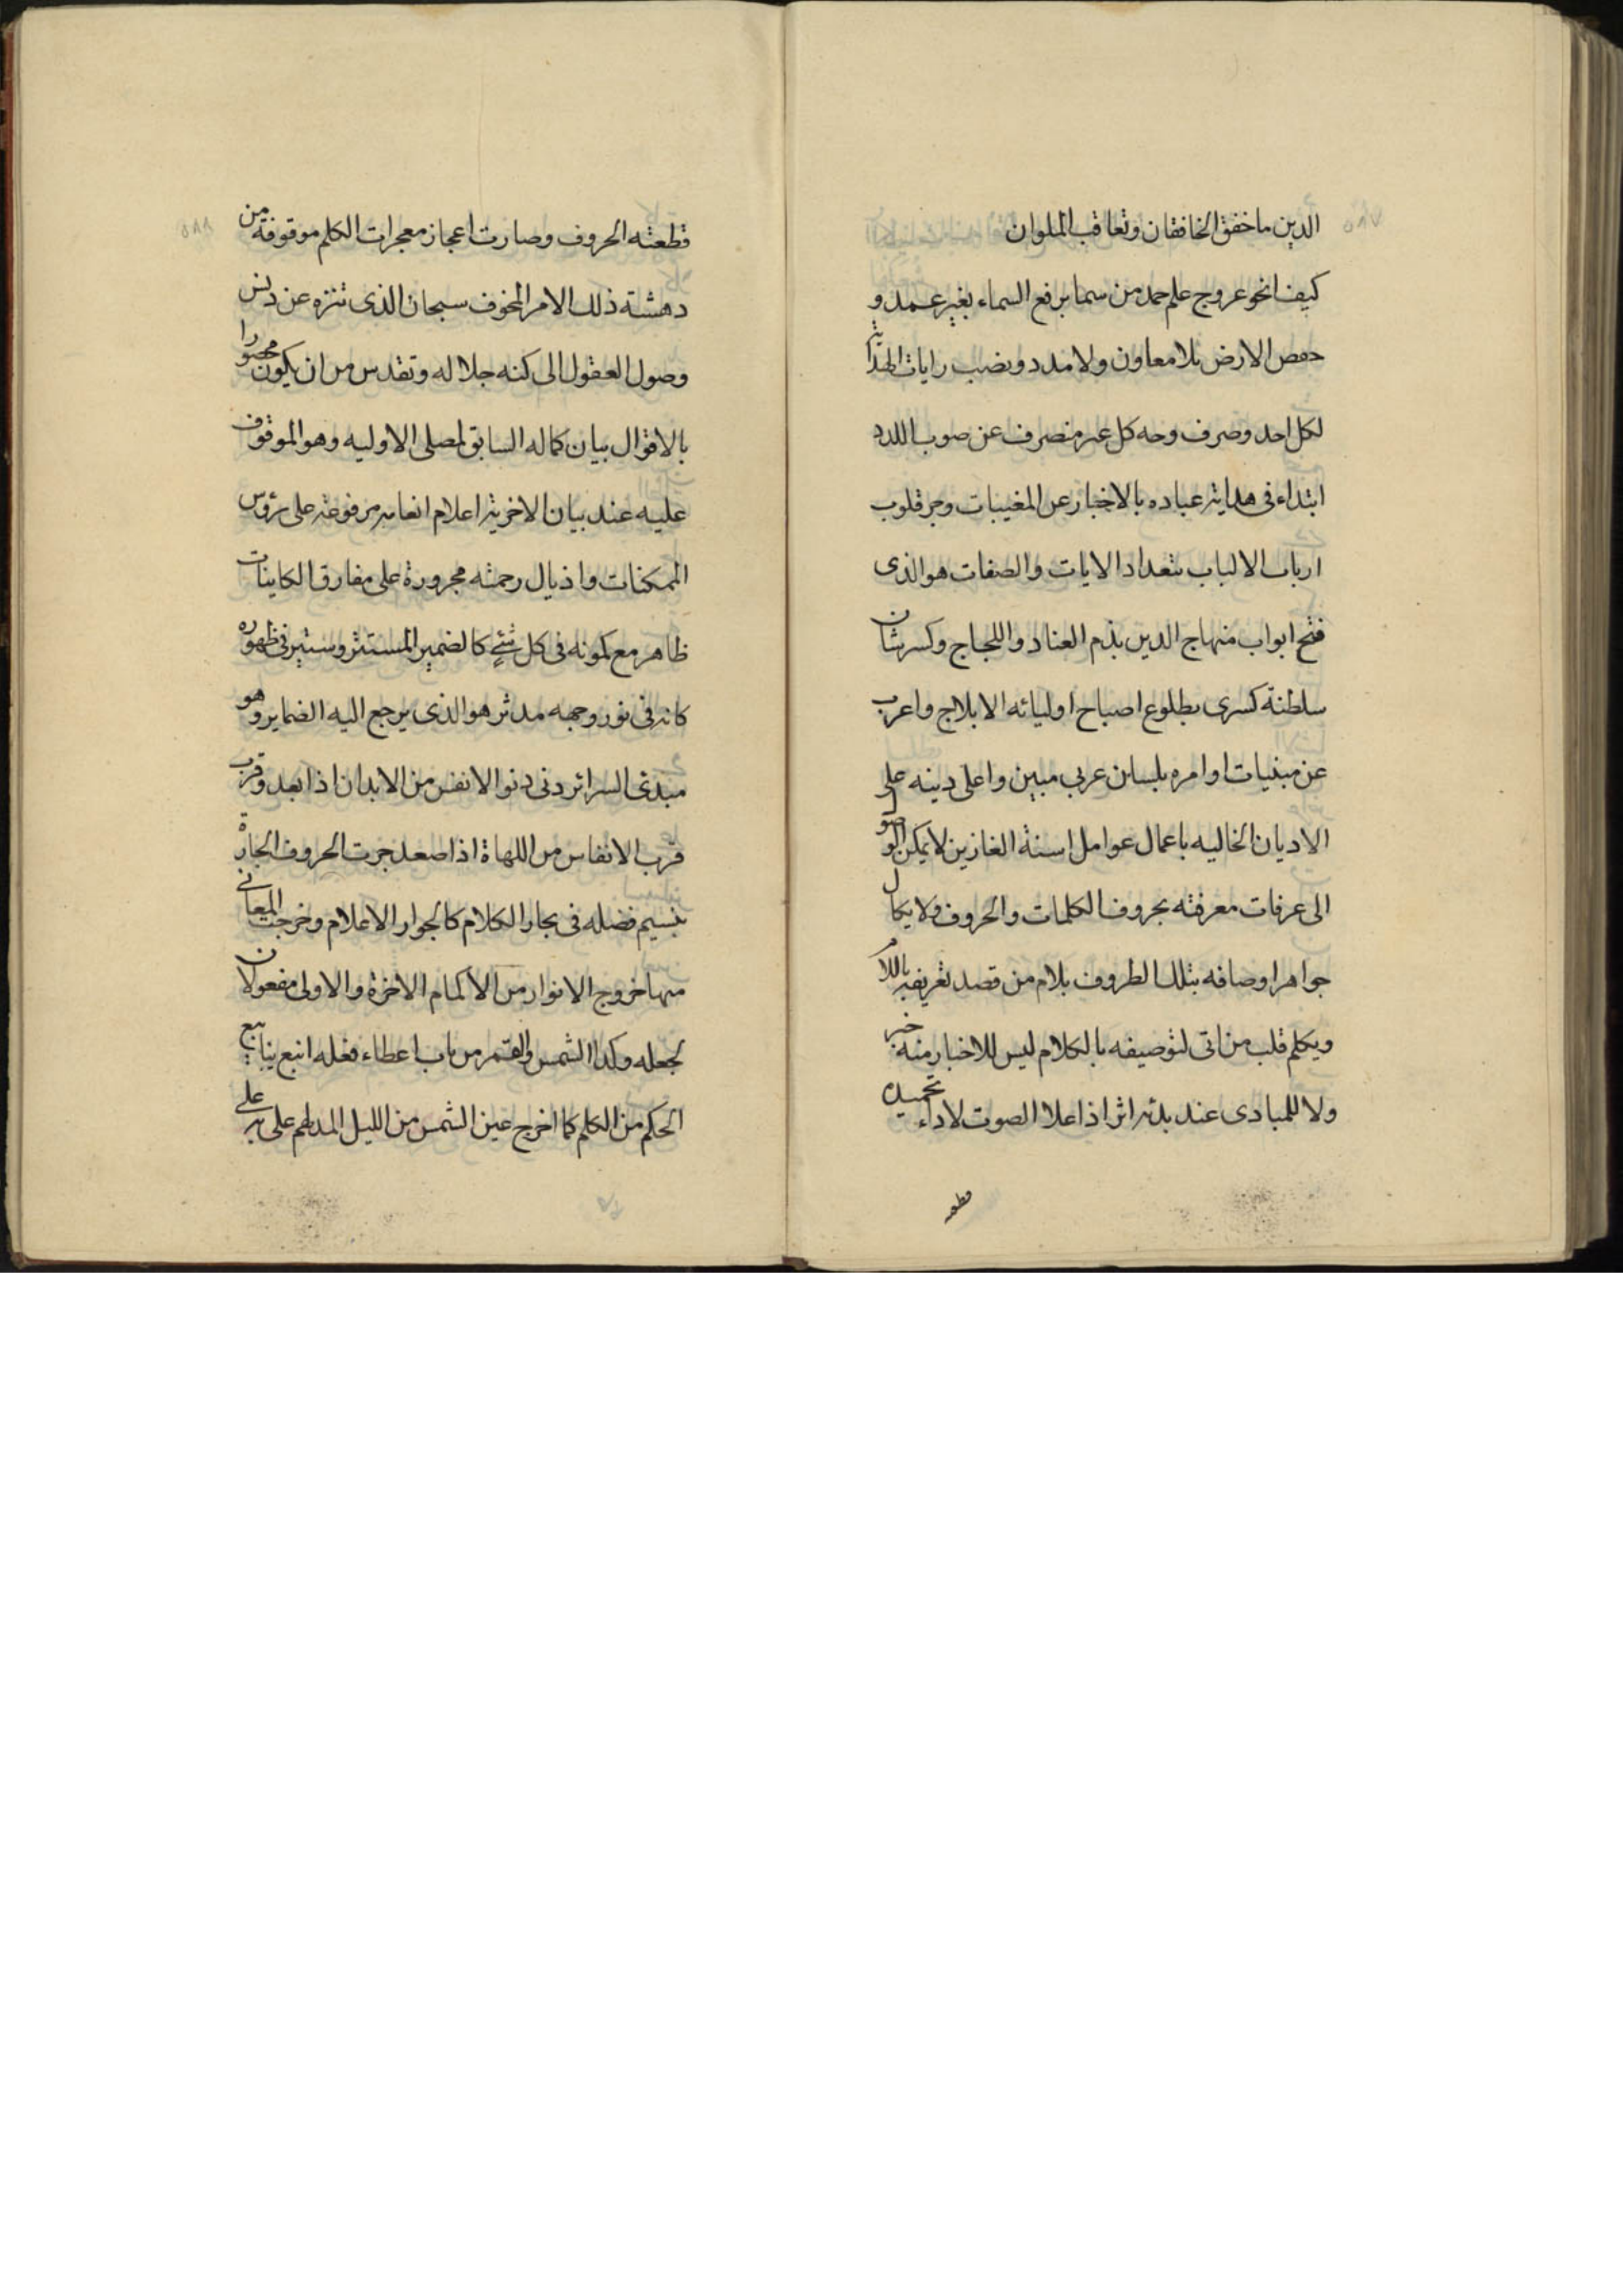 ٥٨٧
الدين ما خفق الخافقان وتعاقب الملوان
كيف انحو عروج علم حمد من سما برفع السماء بغير عمد و
خفص الارض بلا معاون ولا مدد ونصب رايات الهداية
لكل احد وصرف وجه كل غير منصرف عن صوب اللدد
ابتداء فى هداية عباده بالاخبار عن المغيبات وجر قلوب
ارباب الالباب بتعداد الايات والصفات هو الذى
فتح ابواب منهاج الدين بذم العناد واللجاج وكسر شان
سلطنة كسرى بطلوع اصباح اوليائه الابلاج واعرب
عن مبنيات اوامره بلسان عربي مبين واعلى دينه على
الاديان الخاليه باعمال عوامل اسنة الغازين لا يمكن الوصول
الى عرفات معرفته بحروف الكلمات والحروف ولا يكال
جواهر اوصافه بتلك الظروف بلام من قصد تعريفه باللام
ويكلم قلب من اتى لتوصيفه بالكلام ليس للاخبار منه خبر
ولا للمبادى عند بدئه اثر اذا علا الصوت لاداء تحميده
قطعه
٥٨٨
قطعته الحروف وصارت اعجاز معجزات الكلم موقوفة من
دهشة ذلك الامر المخوف سبحان الذى تنزه عن دنس
وصول العقول الى كنه جلاله وتقدس من ان يكون محصورا
بالاقوال بيان كماله السابق لمصلى الاوليه وهو الموقوف
عليه عند بيان الاخرية اعلام انعامه مرفوعة على رؤس
الممكنات واذيال رحمته مجرورة على مفارق الكاينات
ظاهر مع كمونه فى كل شئ كالضمير المستتر وستير فى ظهوره
كانه فى نور وجهه مدثر هو الذى يرجع اليه الضماير وهو
مبدئ السرائر دنى دنو الانفس من الابدان اذا بعد وقرب
قرب الانفاس من اللهاة اذا صعد جرت الحروف الجارة
بنسيم فضله فى بحار الكلام كالجوار الاعلام وخرجت المعاني
منها خروج الانوار من الاكمام الاخرة والاولى مفعولان
لجعله وكذا الشمس والقمر من باب اعطاء فعله انبع ينابيع
الحكم من الكلم كما اخرج عين الشمس من الليل المدلهم على